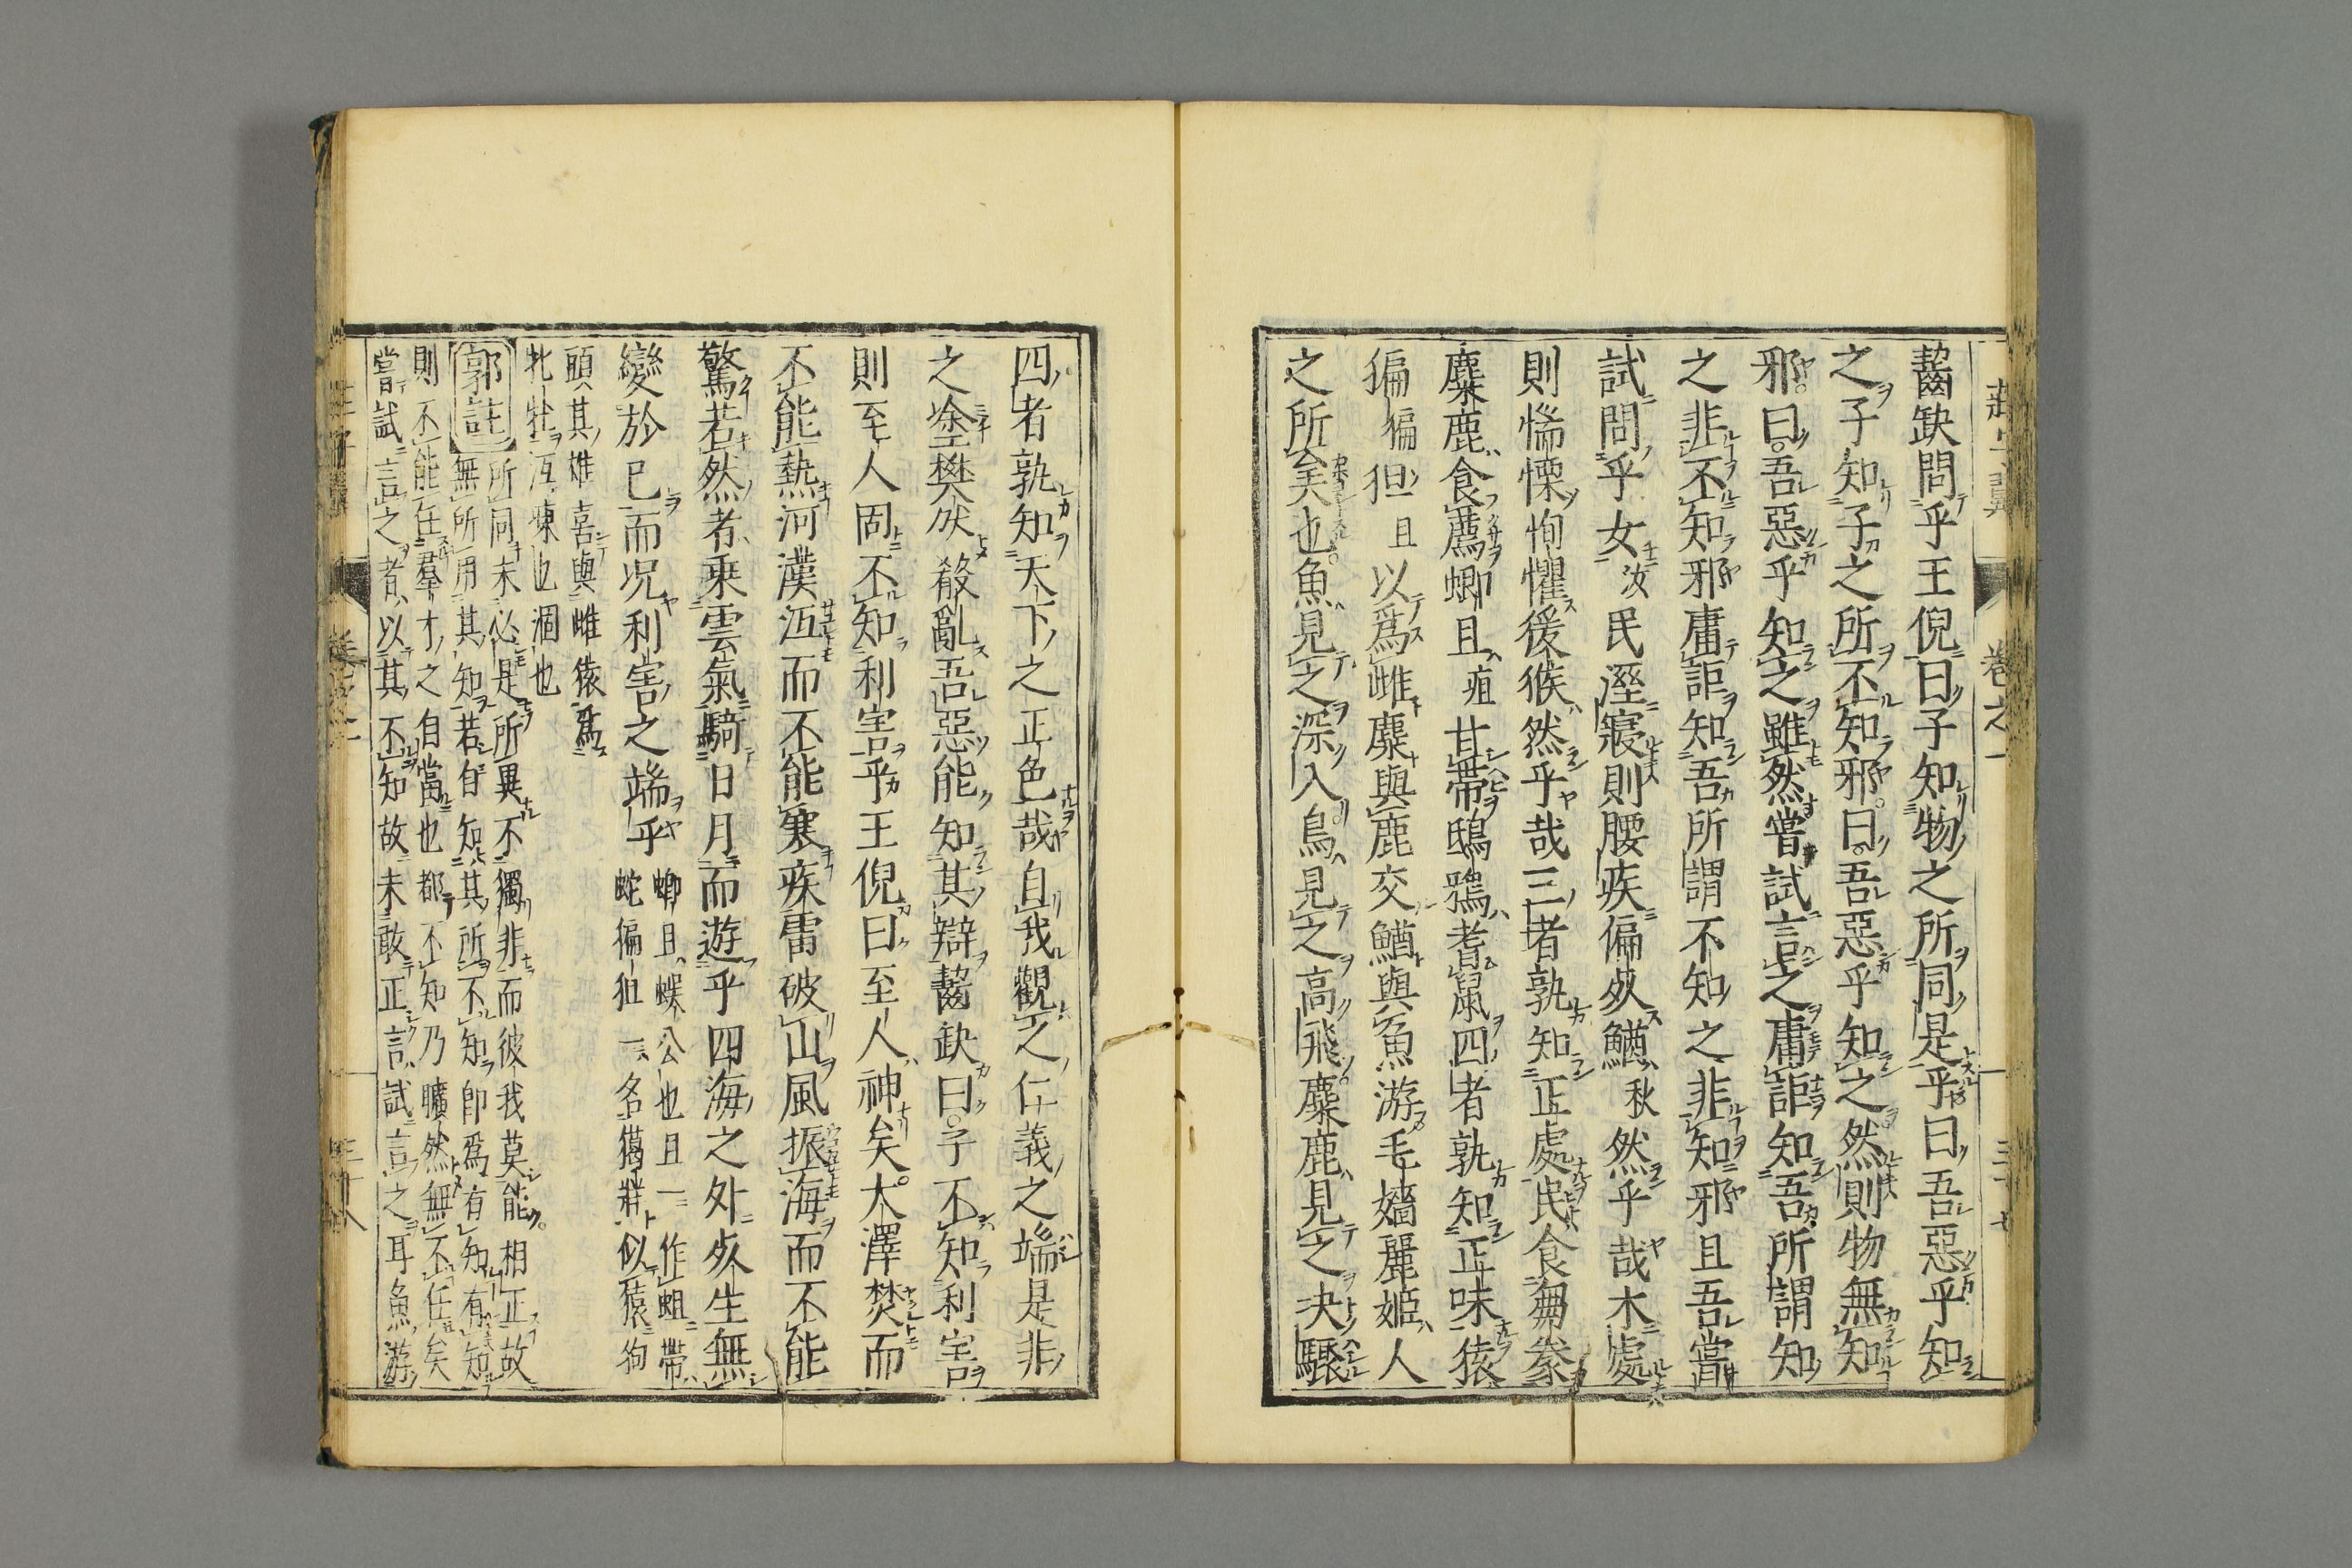 齧缺問乎王倪曰子知物之所同是乎曰吾惡乎知
之子知子之所不知邪曰吾惡乎知之然則物無知
邪曰吾惡乎知之雖然嘗試言之庸詎知吾所謂知
之非不知邪庸詎知吾所謂不知之非知邪且吾嘗
試問乎女汝民溼寢則腰疾偏死鰌秋然乎哉木處
則惴慄恂懼猨猴然乎哉三者孰知正處民食芻豢
麋鹿食薦蝍且疽甘帶鴟鴉耆鼠四者孰知正味猿
猵猵狙且以爲雌麋與鹿交鰌與魚游毛嬙麗姬人
之所美也魚見之深入鳥見之高飛麋鹿見之決驟
四者孰知天下之正色哉自我觀之仁義之端是非
之塗樊然殽亂吾惡能知其辯齧缺曰子不知利害
則至人固不知利害乎王倪曰至人神矣大澤焚而
不能熱河漢沍而不能寒疾雷破山風振海而不能
驚若然者乘雲氣騎日月而遊乎四海之外死生無
變於己而況利害之端乎
蝍且蜈公也且一作蛆帶
蛇猵狙一名獦牂似猿狗
頭其雄喜與雌猿爲
牝牡沍凍也涸也
郭註
所同未必是所異不獨非而彼我莫能相正故
無所用其知若自知其所不知即爲有知有知
則不能任羣才之自當也都不知乃曠然無不任矣
嘗試言之者以其不知故未敢正言試言之耳魚游
莊子翼
卷之一
三十七